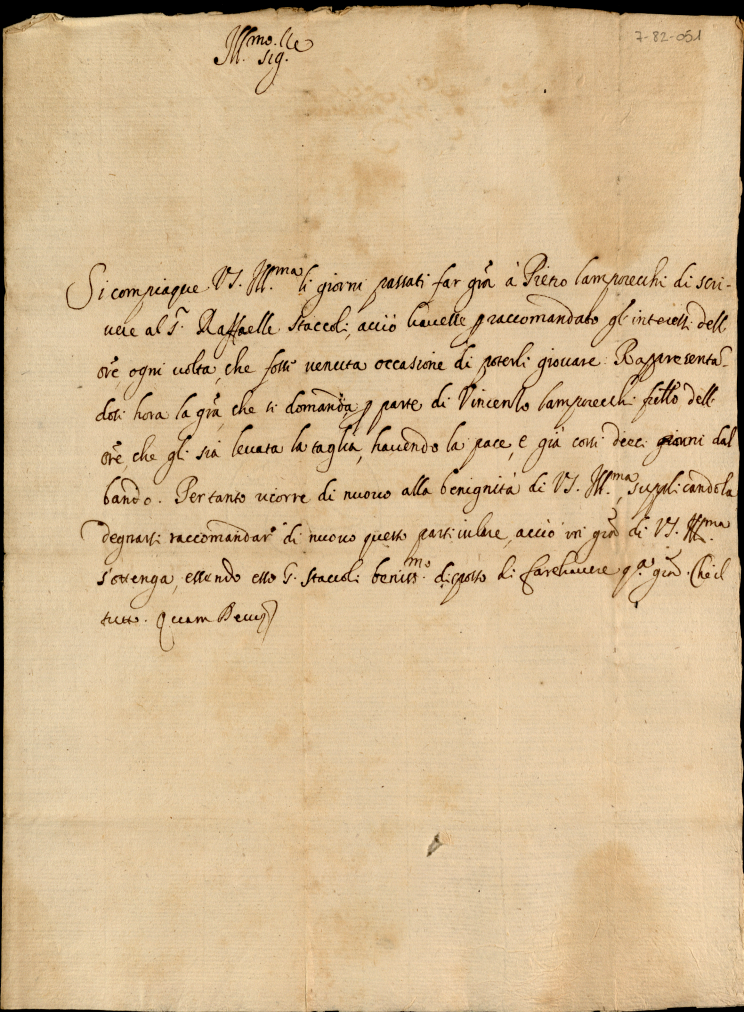 7-82-051
Ill.mo. Sig.re
Si compiaque V.S. Ill.ma li giorni passati far grã à Pietro Lamporecchi di scri-
vere al S.r Raffaelle Staccoli, acciò havesse p raccomandato gl'interessi dell
ore, ogni volta, che fosse venuta occasione di poterli giovare. Rappresentã-
dosi hora la grã, che si domanda p parte di Vincenzo Lamporecchi frĩllo dell
ore, che gli sia levata la taglia, havendo la pace, e già corsi dieci giorni dal
bando. Pertanto ricorre di nuovo alla benignità di V.S. Ill.ma, supplicandola
degnarsi raccomandar.e di nuovo questo particulare, acciò in grã di V.S. Ill.ma
s'ottenga, essendo esso S. Staccoli beniss.mo disposto di far havere q.a grã. Che il
tutto. Quam Deus